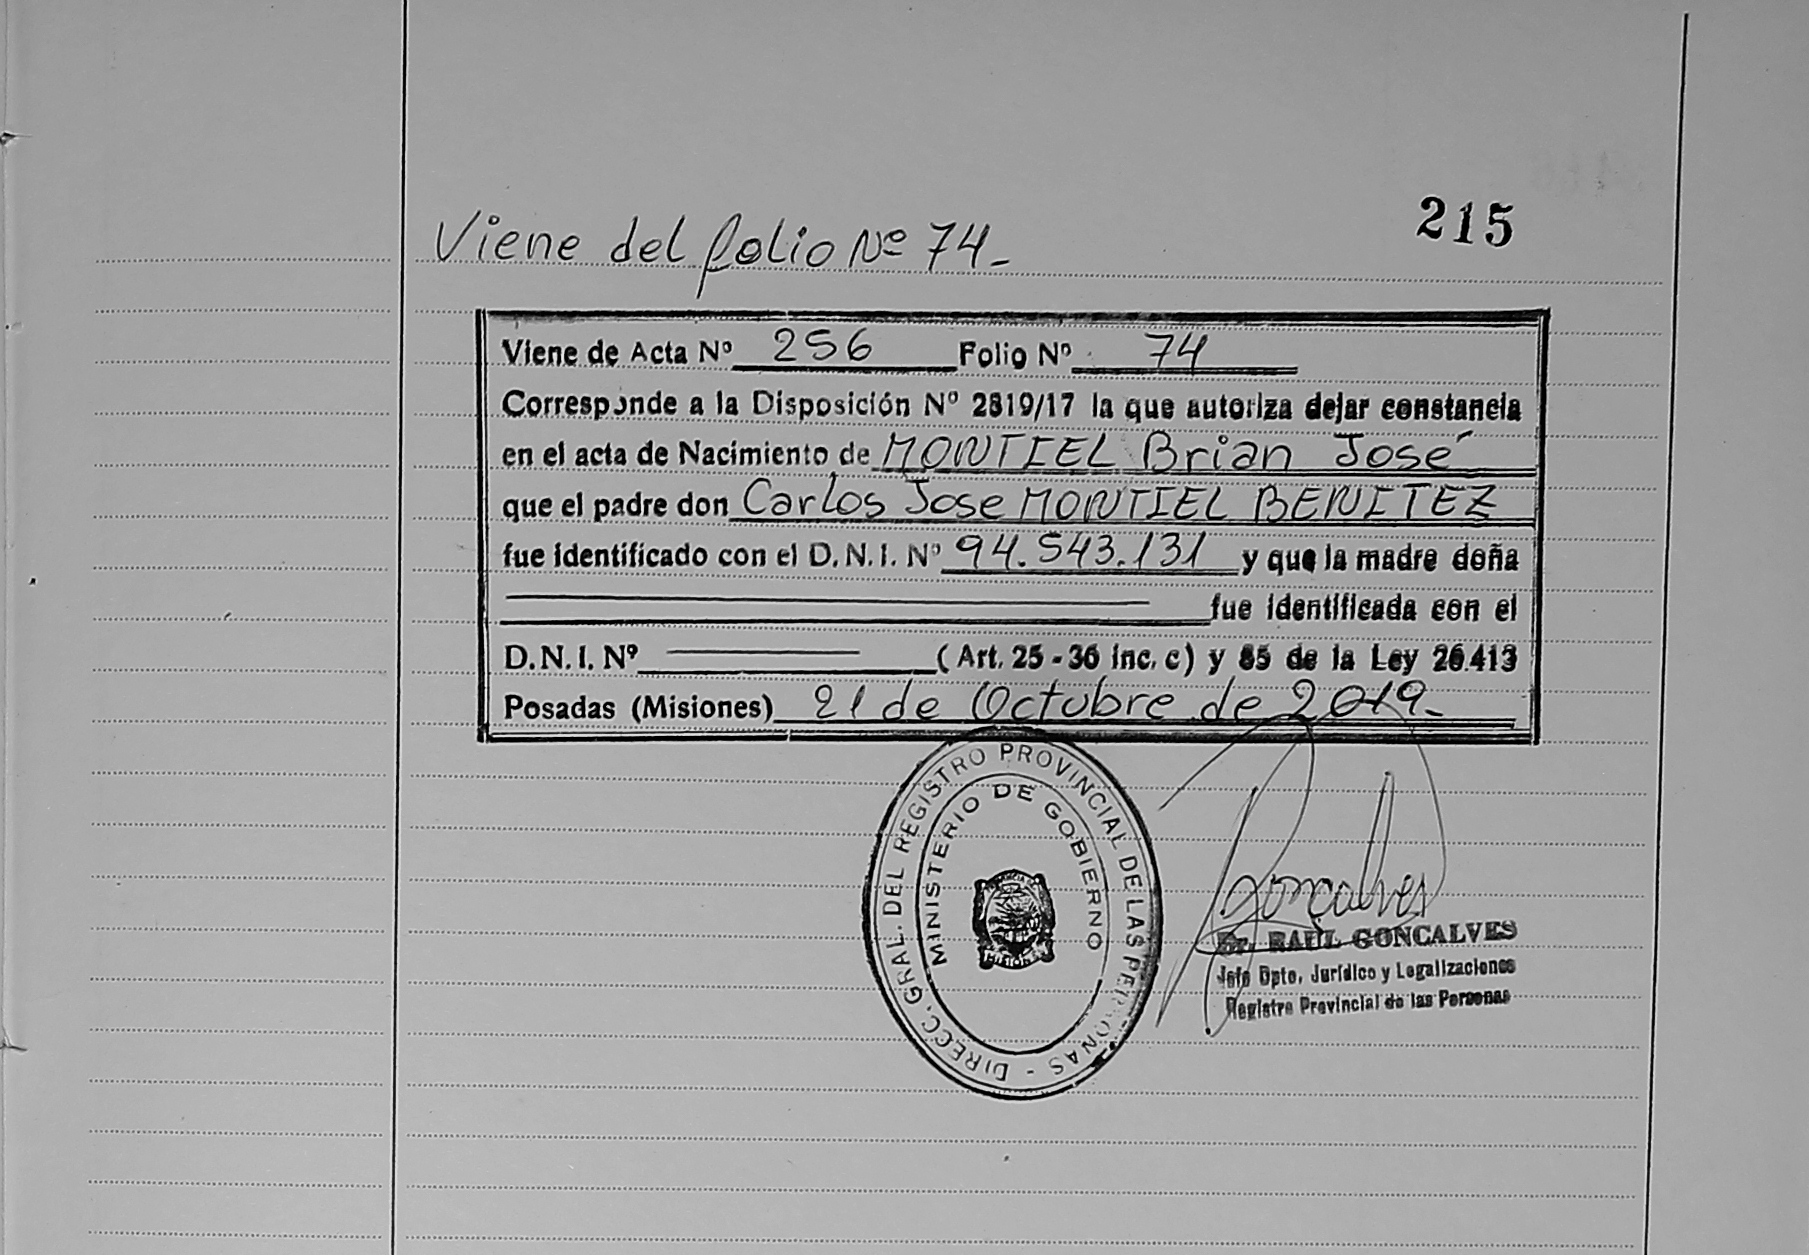 215
Viene del folio Nº 74-
Viene de Acta Nº 256 Folio Nº 74
Corresponde a la Disposición Nº 2819/17 la que autoriza dejar constancia
en el acta de Nacimiento de MONTIEL Brian José
que el padre don Carlos Jose MONTIEL BENITEZ
fue identificado con el D.N.I. Nº 94.543.131 y que la madre doña
fue identificada con el
D.N.I. Nº (Art. 25 - 36 inc. c) y 85 de la Ley 26.413
Posadas (Misiones) 21 de Octubre de 2019-
DIRECC. GRAL. DEL REGISTRO PROVINCIAL DE LAS PERSONAS -
MINISTERIO DE GOBIERNO
MISIONES
Goncalves
Dr. RAUL GONCALVES
Jefe Dpto. Jurídico y Legalizaciones
Registro Provincial de las Personas